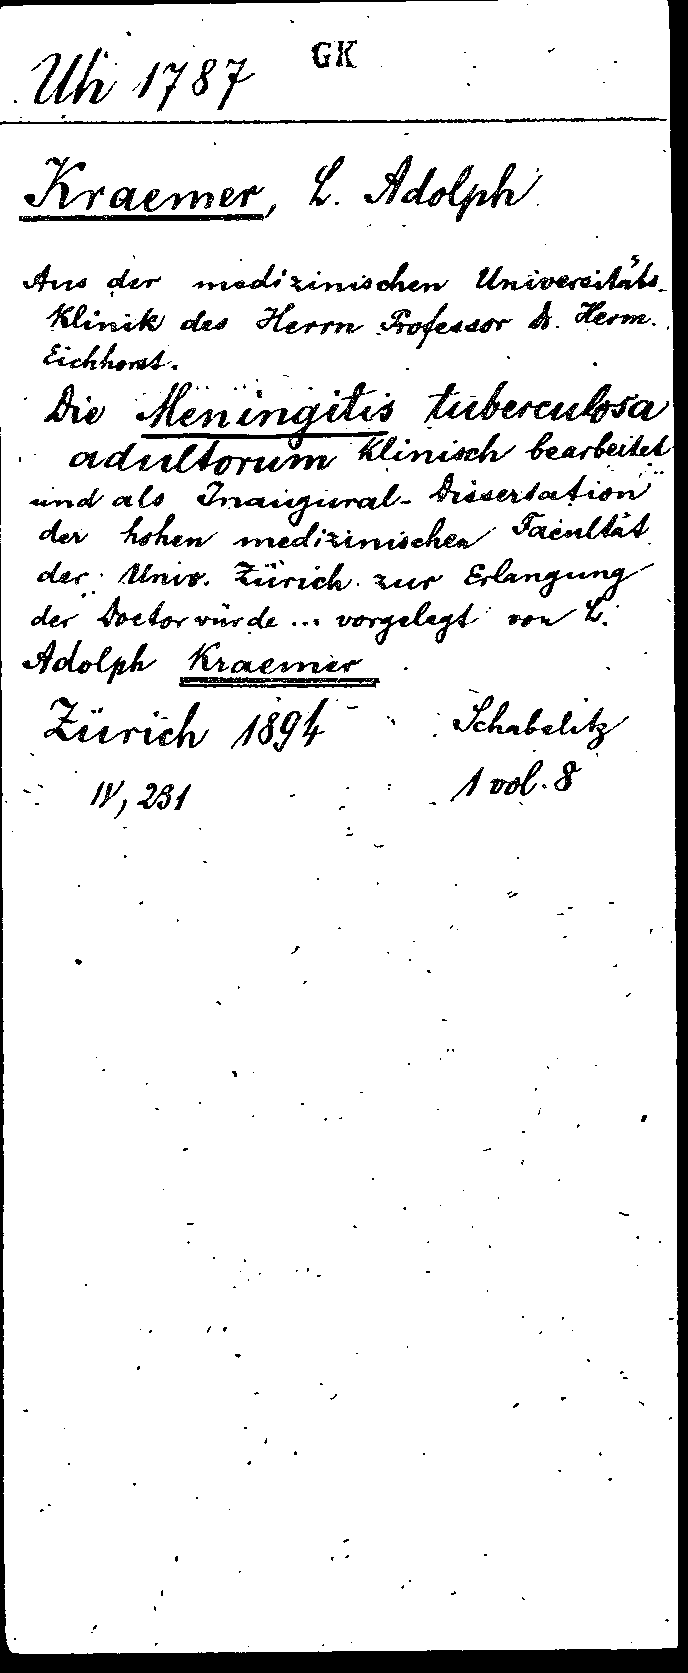 GK
Uh 1787
Kraemer, L. Adolph
Aus der medizinischen Universitäts-
Klinik des Herrn Professor Dr. Herm.
Eichhorst.
Die Meningitis tuberculosa
adultorum klinisch bearbeitet
und als Inaugural-Dissertation
der hohen medizinischen Facultät
der Univ. Zürich zur Erlangung
der Doctorwürde ... vorgelegt von L.
Adolph Kraemer
Zürich 1894 Schabelitz
IV, 231 1 vol. 8